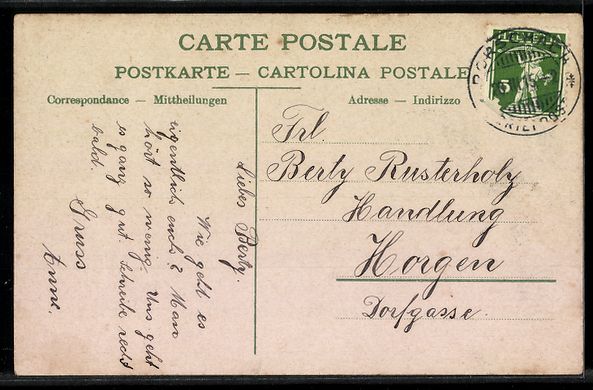 CARTE POSTALE
POSTKARTE – CARTOLINA POSTALE
Correspondance – Mittheilungen
Adresse – Indirizzo
Liebes Berty.
Wie geht es
eigentlich euch? Man
hört so wenig. Uns geht
es ganz gut. Schreibe recht
bald.
Gruss
Anne.
Frl.
Berty Rusterholz
Handlung
Horgen
Dorfgasse.
HELVETIA
5